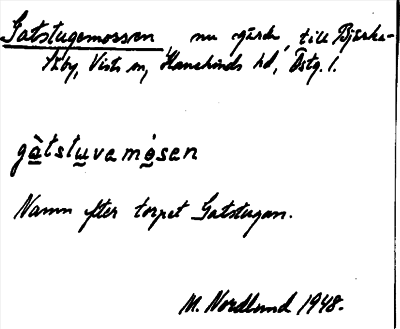 Gatstugemossen, nu gärde, till Bjärka-
Säby, Vists sn, Hanekinds hd, Östg. l.
gàtstuvemósen
Namn efter torpet Gatstugan.
M. Nordlund 1948.